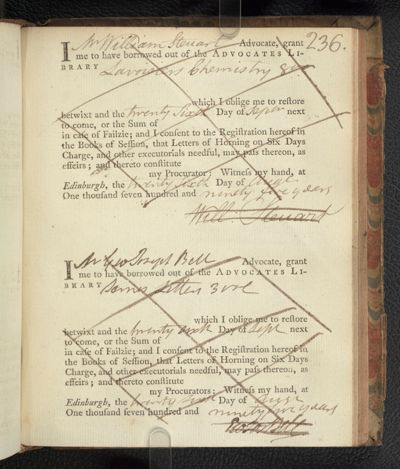 236.
I Mr William Steuart Advocate, grant
me to have borrowed out of the ADVOCATES LI-
BRARY Lavoisiers Chemistry 8vo
which I oblige me to reſtore
betwixt and the twenty sixth Day of Sepr next
to come, or the Sum of
in caſe of Failzie; and I conſent to the Regiſtration hereof in
the Books of Seſſion, that Letters of Horning on Six Days
Charge, and other executorials needful, may paſs thereon, as
effeirs; and thereto conſtitute
my Procurator: Witneſs my hand, at
Edinburgh, the twenty sixth Day of Augt
One thouſand ſeven hundred and ninety five years
Will Steuart
I Mr Bell Advocate, grant
me to have borrowed out of the ADVOCATES LI-
BRARY Letters 3 vol
which I oblige me to reſtore
betwixt and the twenty sixth Day of Sept next
to come, or the Sum of
in caſe of Failzie; and I conſent to the Regiſtration hereof in
the Books of Seſſion, that Letters of Horning on Six Days
Charge, and other executorials needful, may paſs thereon, as
effeirs; and thereto conſtitute
my Procurators: Witneſs my hand, at
Edinburgh, the twenty sixth Day of Augt
One thouſand ſeven hundred and ninety five years
Bell